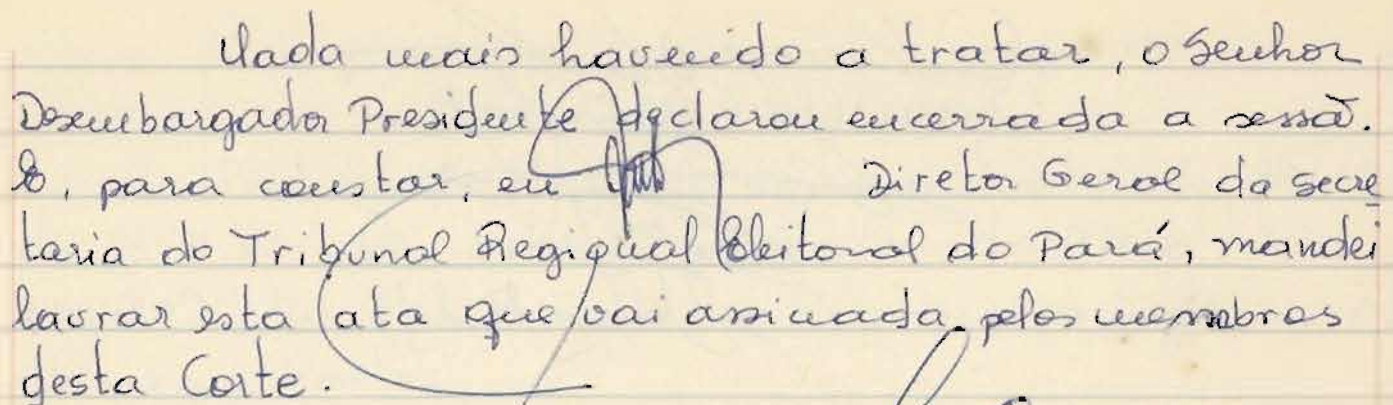 Nada mais havendo a tratar, o Senhor
Desembargador Presidente declarou encerrada a sessão.
E, para constar, eu Diretor Geral da Secre
taria do Tribunal Regional Eleitoral do Pará, mandei
lavrar esta ata que vai assinada pelos membros
desta Corte.